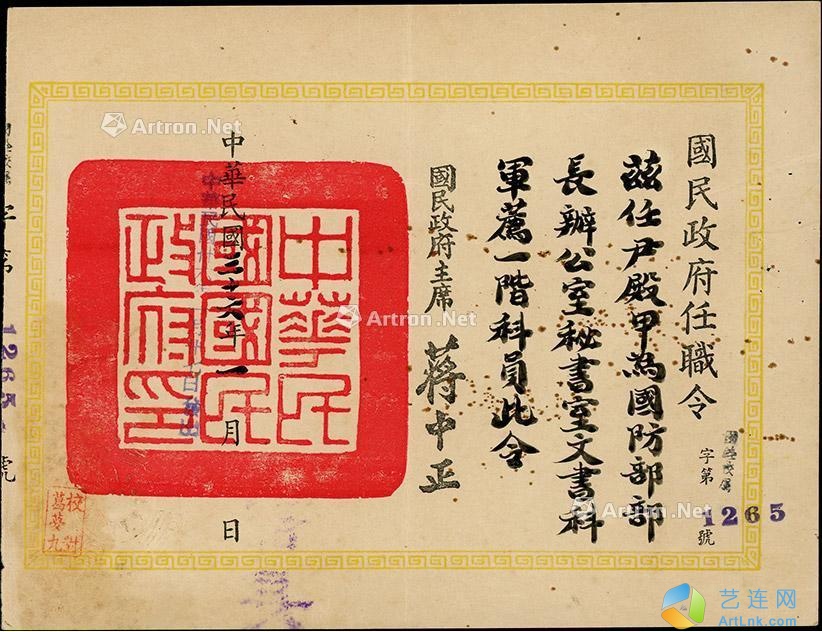 國民政府任職令
字第1265號
茲任尹殿甲為國防部部
長辦公室秘書室文書科
軍薦一階科員此令
國民政府主席 蔣中正
中華民國三十六年一月 日
中華民國
國民政府印
校對
葛葵九
字第1265號
Artron.Net
Artron.Net
Artron.Net
艺连网
ArtLnk.com